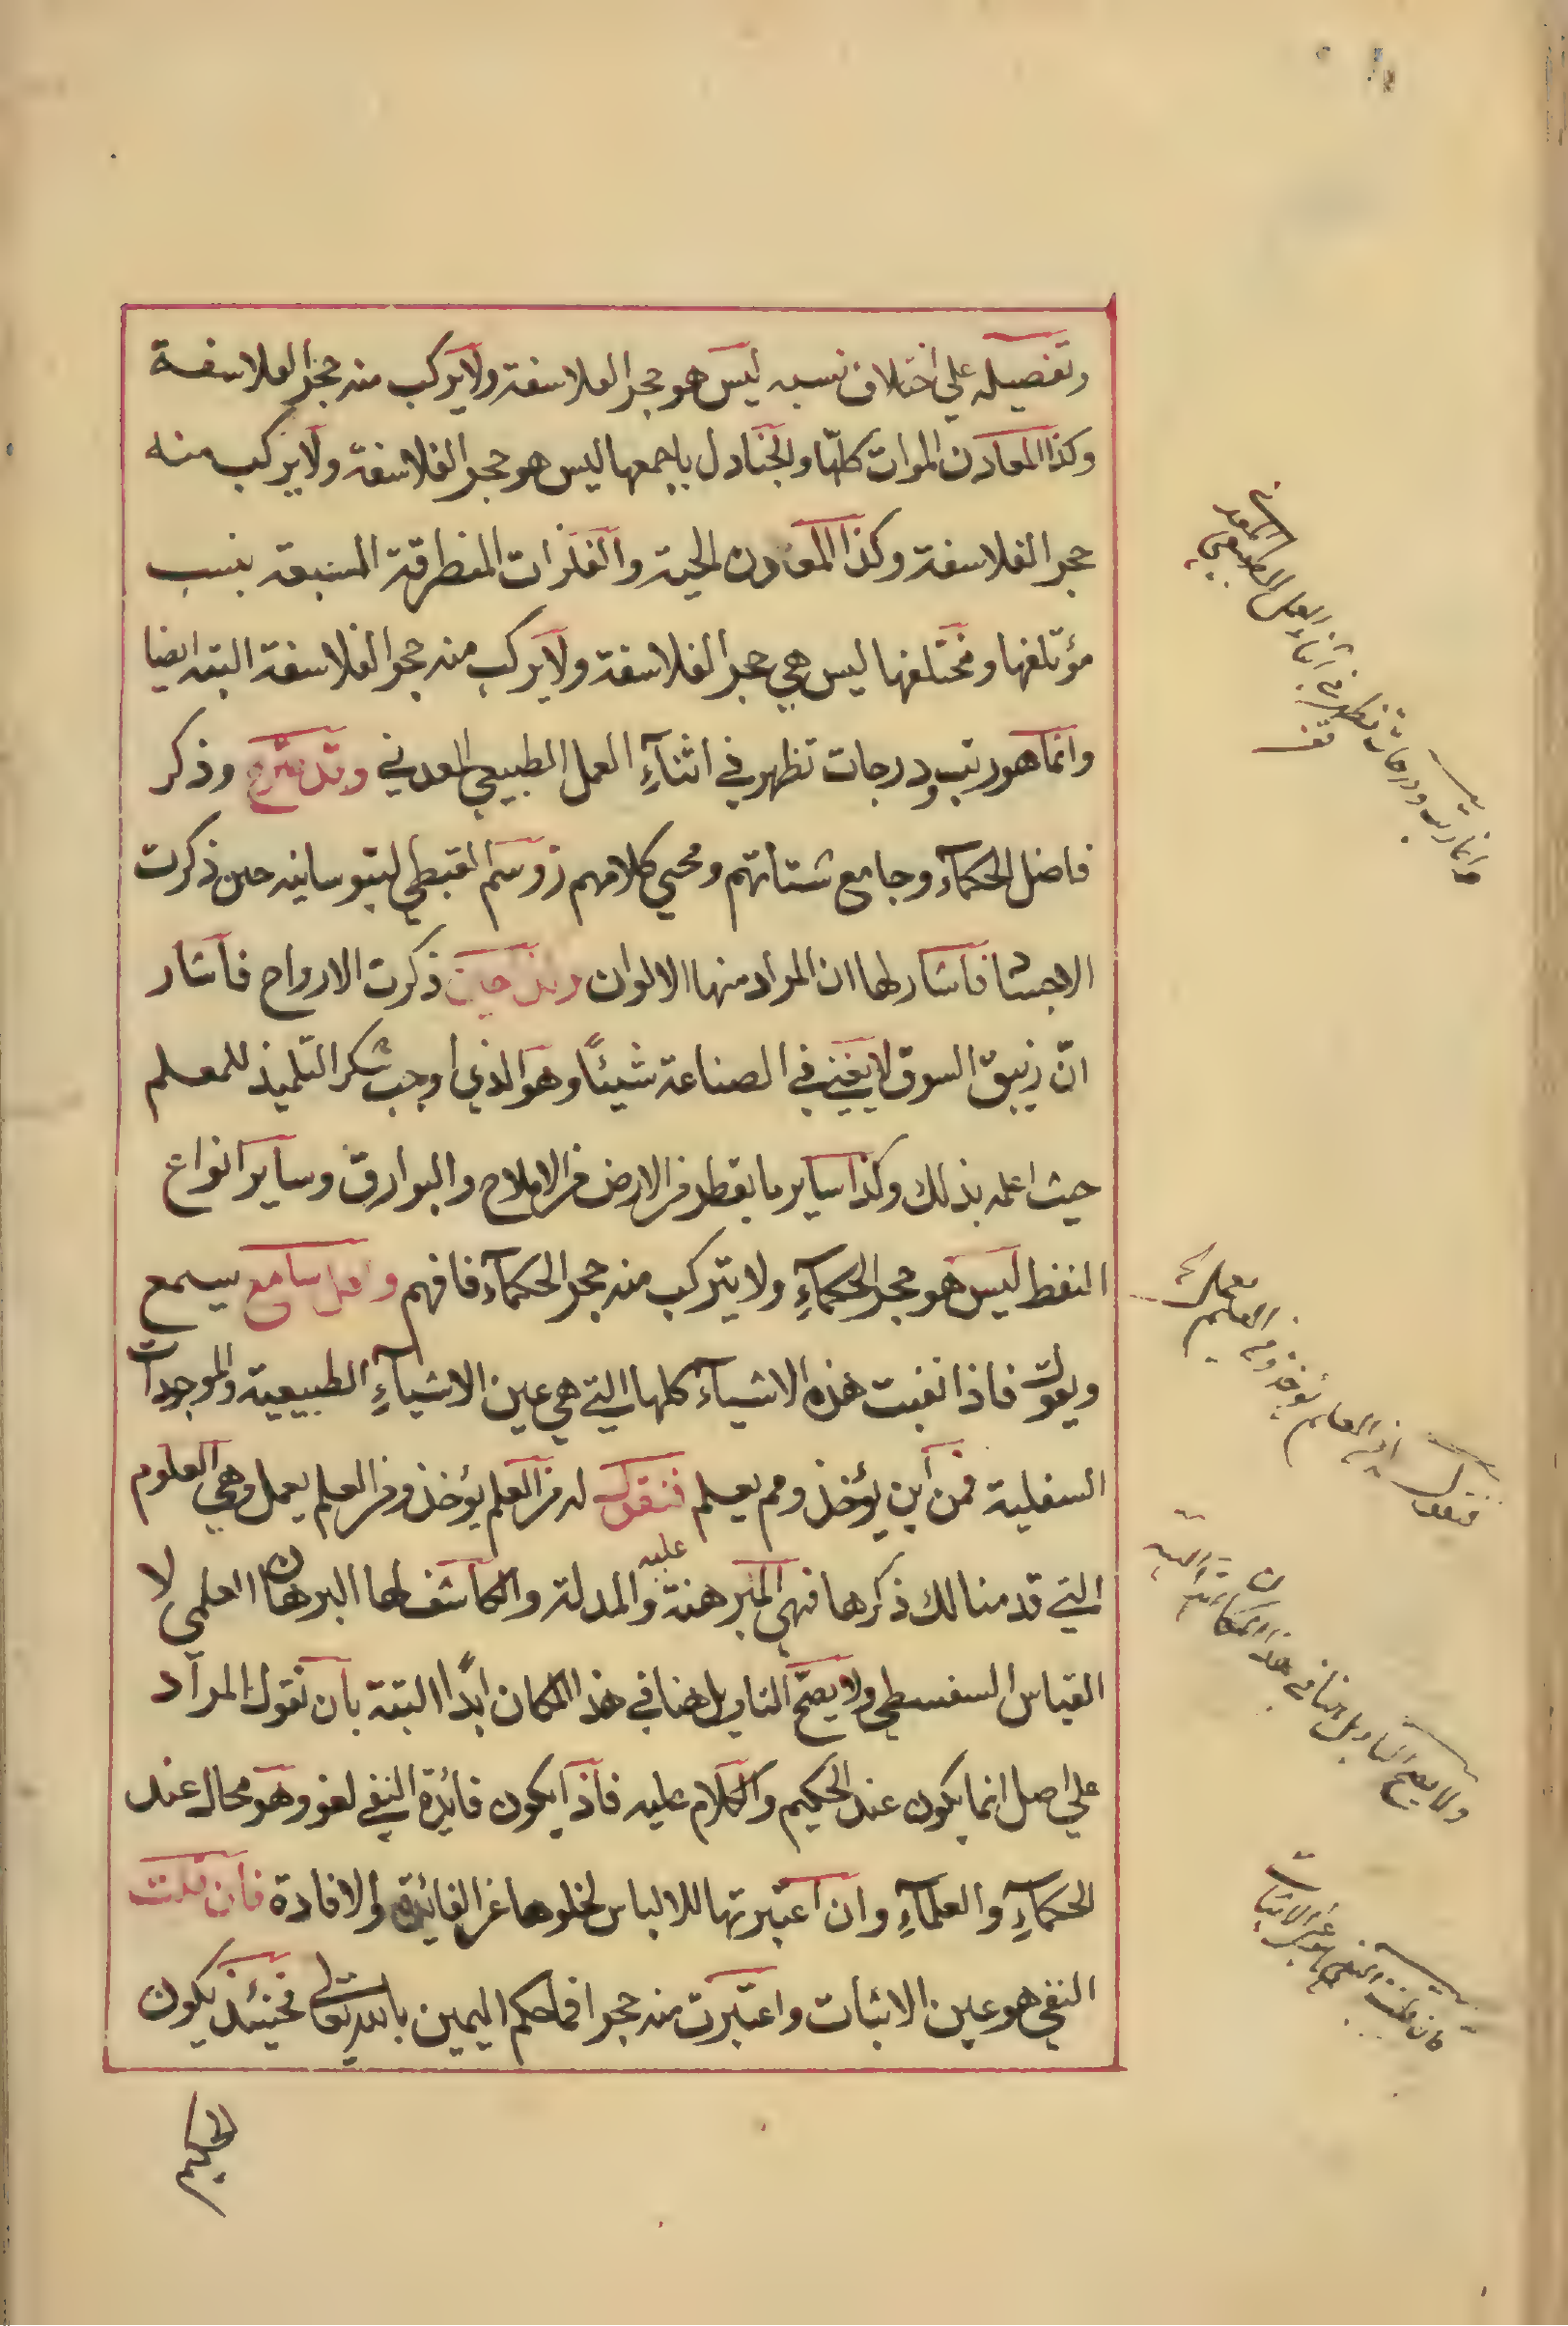 وتفصيله علي اختلاف نسبه ليس هو حجر الفلاسفة ولا يركب منه حجر الفلاسفة
وكذا المعادن الموات كلها والجنادل باجمعها ليس هو حجر الفلاسفة ولا يركب منه
حجر الفلاسفة وكذا المعادن الحية والفلزات المنطرقة السبعة بنسب
مؤتلفها ومختلفها ليس هي حجر الفلاسفة ولا يركب منه حجر الفلاسفة البته ايضا
وانما هو رتب ودرجات تظهر في اثناء العمل الطبيعي المعدني وقد شرح وذكر
فاضل الحكماء وجامع شتاتهم ومحيي كلامهم زوسم القبطي لتيوسانيه حين ذكرت
الاجساد فاشار لها ان المراد منها الالوان ذكرت الارواح فاشار
انّ زيبق السوق لا يغني في الصناعة شيئًا وهو الذي اوجب شكر التلميذ للمعلم
حيث اعلمه بذلك وكذا ساير ما يقطر من الارض من الاملاح والبوارق وساير انواع
النفط ليس هو حجر الحكماءِ ولا يتركب منه حجر الحكماء فافهم ولعل سامع يسمع
ويقول فاذا نفيت هذه الاشياء كلها التي هي عين الاشياءِ الطبيعية والموجدات
السفلية فمن اين يؤخذ ومم يعلم فنقول له من العلم يؤخذ ومن العلم يعمل وهي العلوم
التي قدمنا لك ذكرها فهي المبرهنة والمدلة عليه والكاشف لها البرهان العلمي لا
القياس السفسطي ولا يصح التاويل هنا في هذا المكان ابدًا البتة بان نقول المراد
علي اصل انما يكون عند الحكيم والكلام عليه فاذا يكون فائدة النفي لغو وهو محال عند
الحكماءِ والعلماءِ وان اعتبرتها للالباس لخلوها عن الفائدة والافادة فان قلت
النفي هو عين الاثبات واعتبرت منه حجرا فما حكم اليمين بالله تعالى فحينئذ يكون
الحكيم
وانما رتب ودرجات تظهر في اثناء العمل الطبيعي المعدني
فنقول ان العلم يؤخذ ومن العلم يعمل
ولا يصح التاويل هنا في هذا المكان ابدا البته
فان قلت النفي هو عين الاثبات